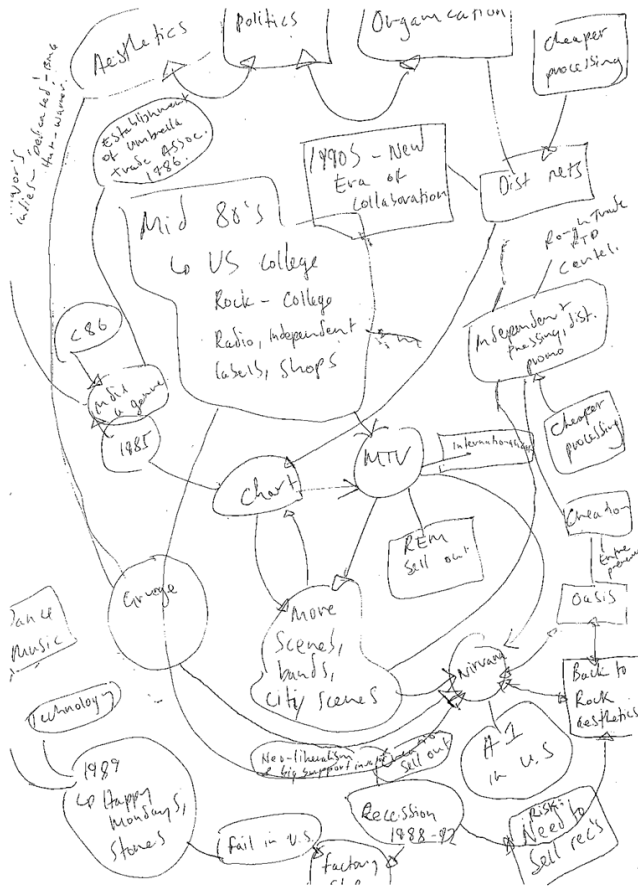 Aesthetics
Politics
Organisation
cheaper
processing
Establishment
of umbrella
Trade Assoc.
1986.
1990s - New
Era of
collaboration
Dist nets
Mid 80's
↳ US college
Rock - College
Radio, independent
labels, shops
Rough Trade
RTD
Independent
pressing, dist.
promo
C86
indie
a genre
1985
Cheaper
processing
Chart
MTV
REM
sell out
Creation
Oasis
Grunge
More
Scenes,
bands,
City scenes
Nirvana
Back to
Rock
aesthetics
Dance
Music
Technology
#1
in U.S
Neo-liberalism
& big support in
sell out
1989
↳ Happy
Mondays,
Stones
Fail in U.S.
Recession
1988-92
Risk:
Need to
Sell rec's
factory